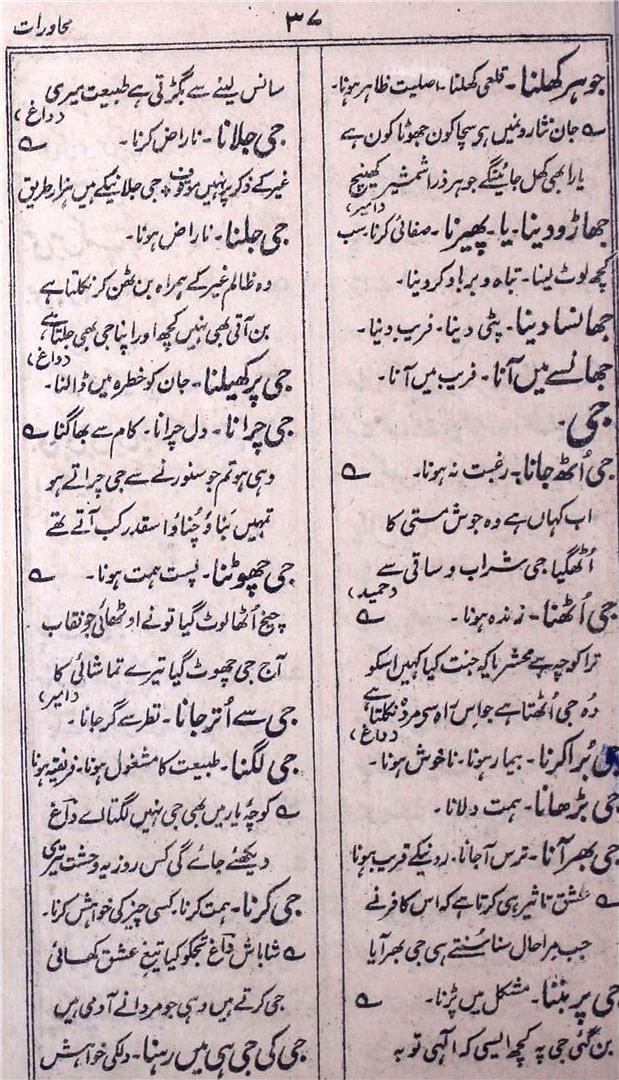 محاورات
۳۷
جوہر کھلنا۔ قلعی کھلنا۔ اصلیت ظاہر ہونا۔
جان نثاروں میں ہر سچا کون جھوٹا کون ہے
یار ابھی کھل جائینگے جوہر ذرا شمشیر کھینچ
(امیر)
جھاڑو دینا۔ یا۔ پھیرنا۔ صفائی کرنا۔ سب
کچھ لوٹ لینا۔ تباہ و برباد کر دینا۔
جھانسا دینا۔ پٹی دینا۔ فریب دینا۔
جھانسے میں آنا۔ فریب میں آنا۔
جی۔
جی اُٹھ جانا۔ رغبت نہ ہونا۔
اب کہاں ہے وہ جوش مستی کا
اُٹھ گیا جی شراب و ساقی سے
(حمید)
جی اُٹھنا۔ زندہ ہونا۔
ترا کوچہ ہے محشر یا کہ جنت کیا کہیں اسکو
وہ جی اُٹھتا ہے جو اس راہ سے مردہ نکلتا ہے
(داغ)
جی بُرا کرنا۔ بیمار ہونا۔ ناخوش ہونا۔
جی بڑھانا۔ ہمت دلانا۔
جی بھر آنا۔ ترس آجانا۔ رونیکے قریب ہونا
عشق تاثیر ہی کرتا ہے کہ اس کافر نے
جب مرا حال سنا سُنتے ہی جی بھر آیا
جی پر بننا۔ مشکل میں پڑنا۔
بن گئی جی پہ کچھ ایسی کہ الٰہی توبہ
سانس لینے سے بگڑتی ہے طبیعت میری
(داغ)
جی جلانا۔ ناراض کرنا۔
غیر کے ذکر پر نہیں موقوف جی جلانیکے ہیں ہزار طریق
جی جلنا۔ ناراض ہونا۔
وہ ظالم غیر کے ہمراہ بن ٹھن کر نکلتا ہے
بن آتی بھی نہیں کچھ اور اپنا جی بھی جلتا ہے
(داغ)
جی پر کھیلنا۔ جان کو خطرہ میں ڈالنا۔
جی چرانا۔ دل چرانا۔ کام سے بھاگنا
وہی ہو تم جو سنورنے سے جی چراتے ہو
تمہیں بَناؤ چُناؤ اسقدر کب آتے تھے
جی چھوٹنا۔ پست ہمت ہونا۔
چیخ اُٹھا لوٹ گیا تونے اوٹھائی جو نقاب
آج جی چھوٹ گیا تیرے تماشائی کا
(امیر)
جی سے اُتر جانا۔ نظر سے گر جانا۔
جی لگنا۔ طبیعت کا مشغول ہونا۔ فریفتہ ہونا
کوچۂ یار میں بھی جی نہیں لگتا اے داغ
دیکھئے جائے گی کس روز یہ وحشت تیری
جی کرنا۔ ہمت کرنا۔ کسی چیز کی خواہش کرنا۔
شاباش داغ تجکو کیا تیغ عشق کھائی
جی کرتے ہیں وہی جو مردانے آدمی ہیں
جی کی جی ہی میں رہنا۔ دلکی خواہش